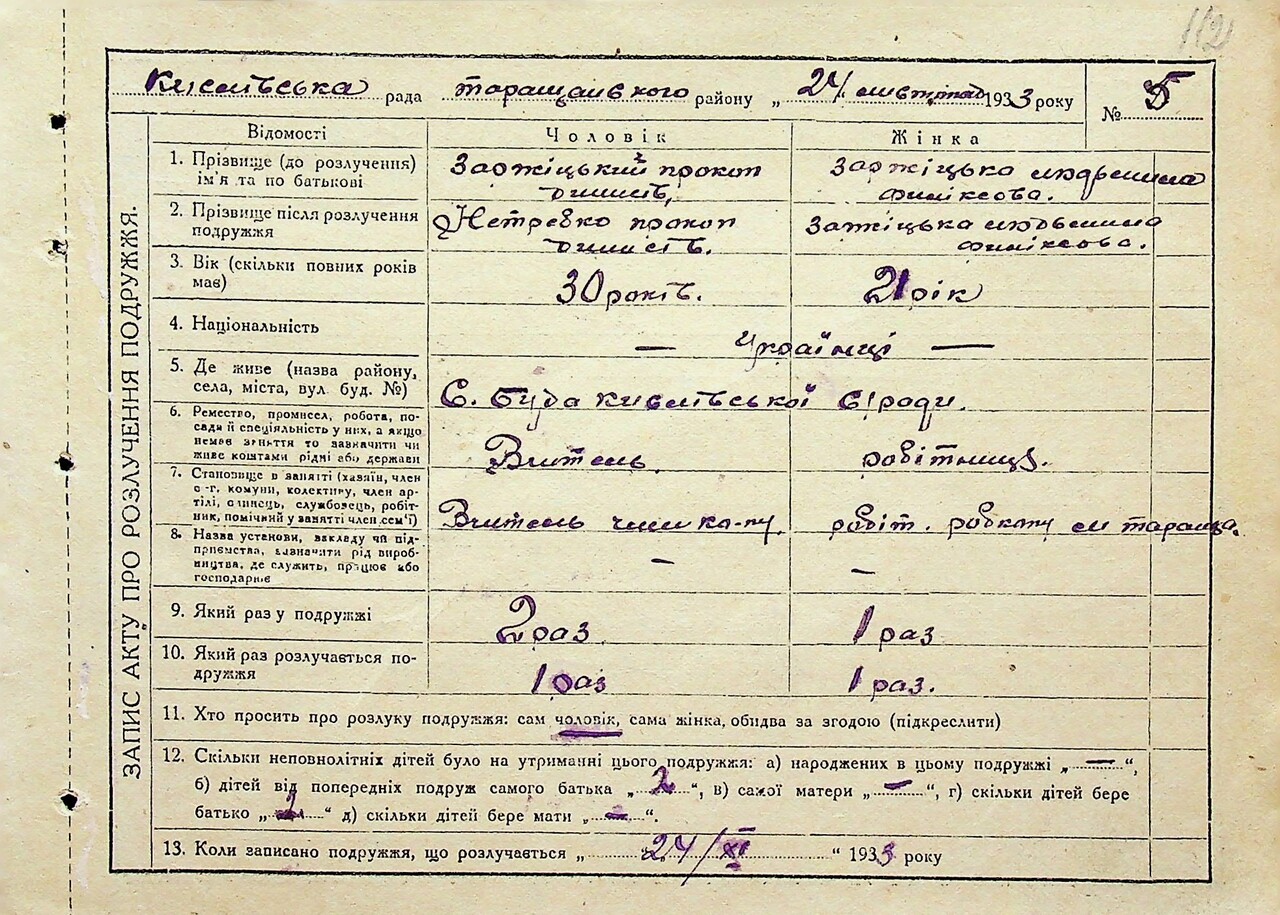 112
Киселівська рада таращанського району „ 24 листопад 1933 року
№ 5
ЗАПИС АКТУ ПРО РОЗЛУЧЕННЯ ПОДРУЖЖЯ.
Відомості Чоловік Жінка
1. Прізвище (до розлучення) Заржіцький прокоп Заржіцька
ім'я та по батькові
2. Прізвище після розлучення Нетребко прокоп Заржіцька
подружжя
3. Вік (скільки повних років
має) 30 років. 21 рік
4. Національність — Українці —
5. Де живе (назва району,
села, міста, вул. буд. №) С. Буда с/ради.
6. Ремество, промисел, робота, по-
сада й спеціяльність у них, а якщо
немає зайняття то зазначити чи
живе коштами рідні або держави Вчитель. робітниця.
7. Становище в занятті (хазяїн, член
с.-г. комуни, колективу, член ар-
тілі, одинець, службовець, робіт-
ник, помічний у занятті член сем'ї) Вчитель робіт. робкопу м тараща.
8. Назва установи, закладу чи під-
приємства, зазначити рід вироб-
ництва, де служить, працює або
господарює — —
9. Який раз у подружжі 2 раз 1 раз
10. Який раз розлучається по-
дружжя 1 раз 1 раз.
11. Хто просить про розлуку подружжя: сам чоловік, сама жінка, обидва за згодою (підкреслити)
12. Скільки неповнолітніх дітей було на утриманні цього подружжя: а) народжених в цьому подружжі „ — “,
б) дітей від попередніх подруж самого батька „ 2 “, в) самої матери „ — “, г) скільки дітей бере
батько „ 2 “ д) скільки дітей бере мати „ — “.
13. Коли записано подружжя, що розлучається „ 24/XI “ 1933 року